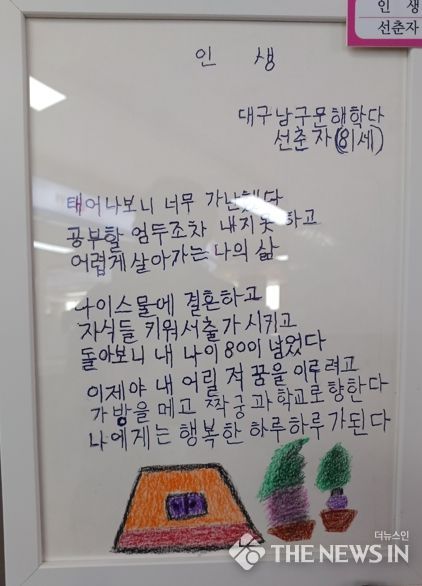 인 생
선춘자
인 생
대구남구문해학다
선춘자(81세)
태어나보니 너무 가난했다
공부할 엄두조차 내지못 하고
어렵게살아가는 나의 삶
나이스물에 결혼하고
자식들 키워서출가시키고
돌아보니 내 나이80이 넘었다
이제야 내 어릴 적 꿈을 이루려고
가방을 메고 짝궁과학교로향한다
나에게는 행복한 하루하루가된다
더뉴스인
THE NEWS IN